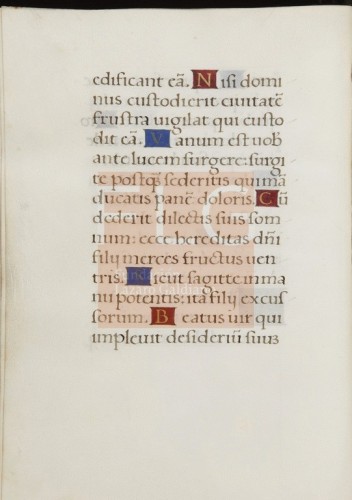 edificant eã. Nisi domi
nus custodierit ciuitatẽ
frustra uigilat qui custo
dit eã. Vanum est uob̃
ante lucem surgere: surgi
te postq̃ sederitis qui mã
ducatis panẽ doloris. Cũ
dederit dilectis suis som
num: ecce hereditas dñi
filij merces fructus uen
tris. Sicut sagitte in ma
nu potentis: ita filij excus
sorum. Beatus uir qui
impleuit desideriũ suũ
Fundación
Lázaro Galdiano